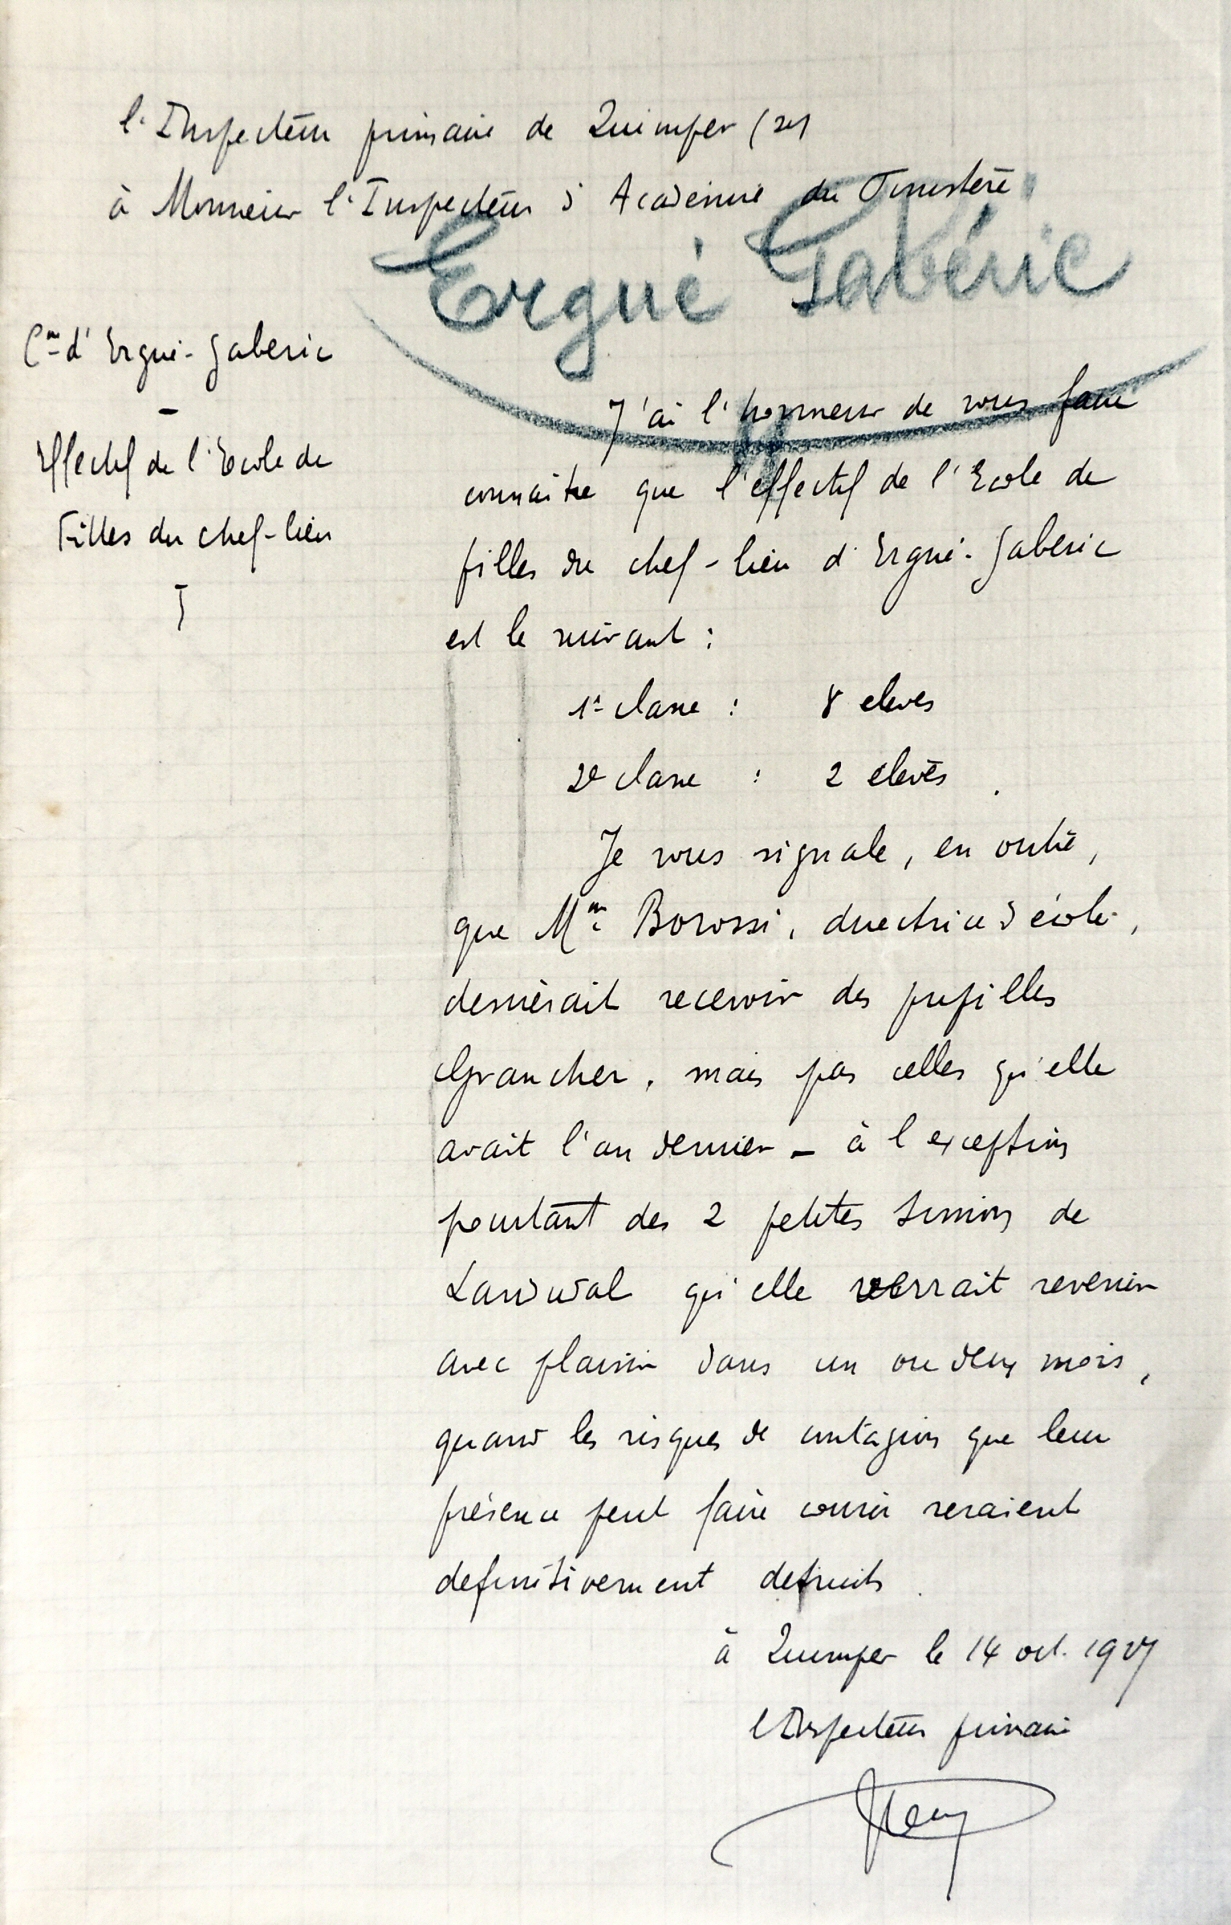 l'Inspecteur primaire de Quimper
à Monsieur l'Inspecteur d'Académie du Finistère
Ergué Gabéric
Cne d'Ergué-Gabéric
—
Effectif de l'Ecole de
Filles du chef-lieu
J'ai l'honneur de vous faire
connaître que l'effectif de l'Ecole de
filles du chef-lieu d'Ergué-Gabéric
est le suivant :
1e classe : 8 élèves
2e classe : 2 élèves .
Je vous signale, en outre,
que Mme Borossi, directrice d'école,
désirerait recevoir des pupilles
Grancher, mais pas celles qu'elle
avait l'an dernier – à l'exception
pourtant des 2 petites Simon de
Landudal qu'elle verrait revenir
avec plaisir dans un ou deux mois,
quand les risques de contagion que leur
présence peut faire courir seraient
définitivement détruits .
à Quimper le 14 oct. 1927
l'Inspecteur primaire